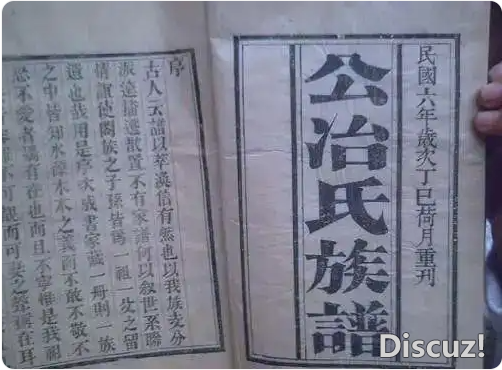 民國六年歲次丁巳荷月重刊
公冶氏族譜
序
古人云譜以萃渙信有然也以我族支分
派遠播遷散置不有家譜何以敘世系聯
情誼使闔族之子孫皆為一祖一父之留
遺也哉用是序次成書家藏一冊則一族
之中皆知水源木本之義而不敢不敬不
忍不愛者端有在也而且不寧惟是我祖
Discuz!